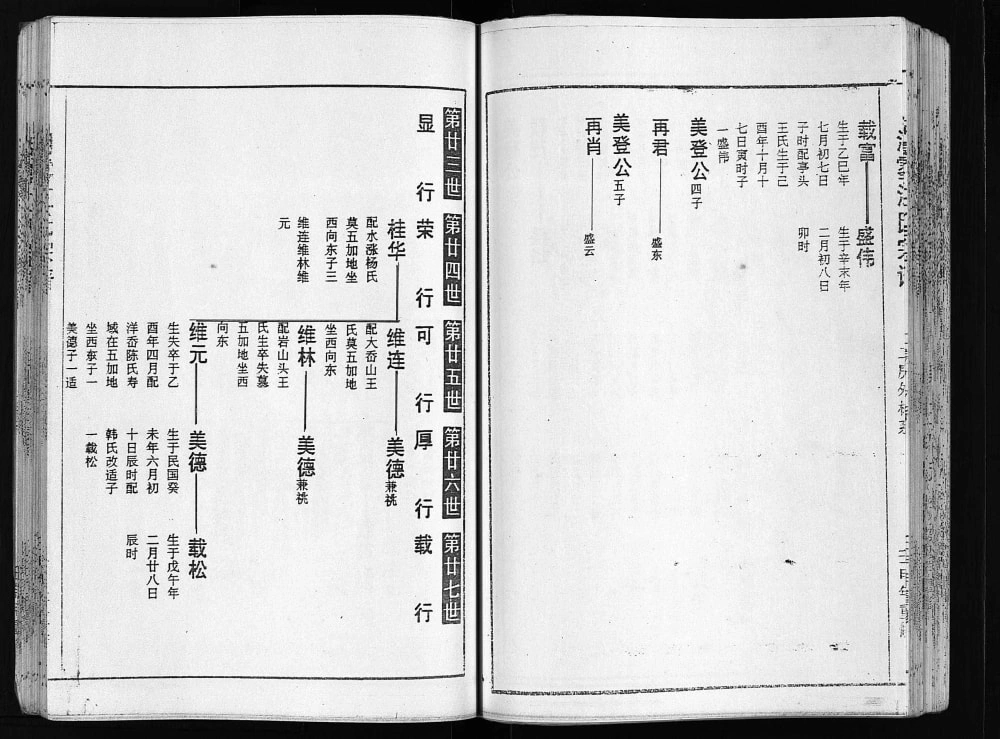 载富
生于乙巳年
七月初七日
子时配亭头
王氏生于己
酉年十月十
七日寅时子
一盛伟
盛伟
生于辛未年
二月初八日
卯时
美登公四子
再君
盛东
美登公五子
再肖
盛云
第廿三世
第廿四世
第廿五世
第廿六世
第廿七世
显行
荣行
可行
厚行
载行
桂华
配水涨杨氏
莫五加地坐
西向东子三
维连维林维
元
维连
配大岙山王
氏莫五加地
坐西向东
美德兼祧
维林
配岩山头王
氏生卒失墓
五加地坐西
向东
美德兼祧
维元
生失卒于乙
酉年四月配
洋岙陈氏寿
域在五加地
坐西东子一
美德子一适
美德
生于民国癸
未年六月初
十日辰时配
韩氏改适子
一载松
载松
生于戊午年
二月廿八日
辰时